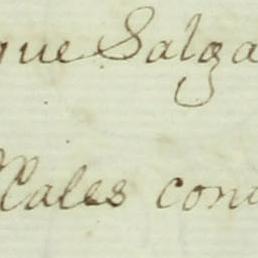 que Salga
Males con